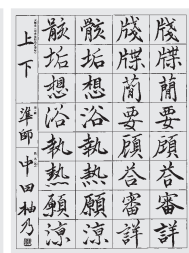 牋牒簡要顧荅審詳
牋牒簡要顧荅審詳
骸垢想浴執熱願涼
骸垢想浴執熱願涼
上下
準師 中田柚乃